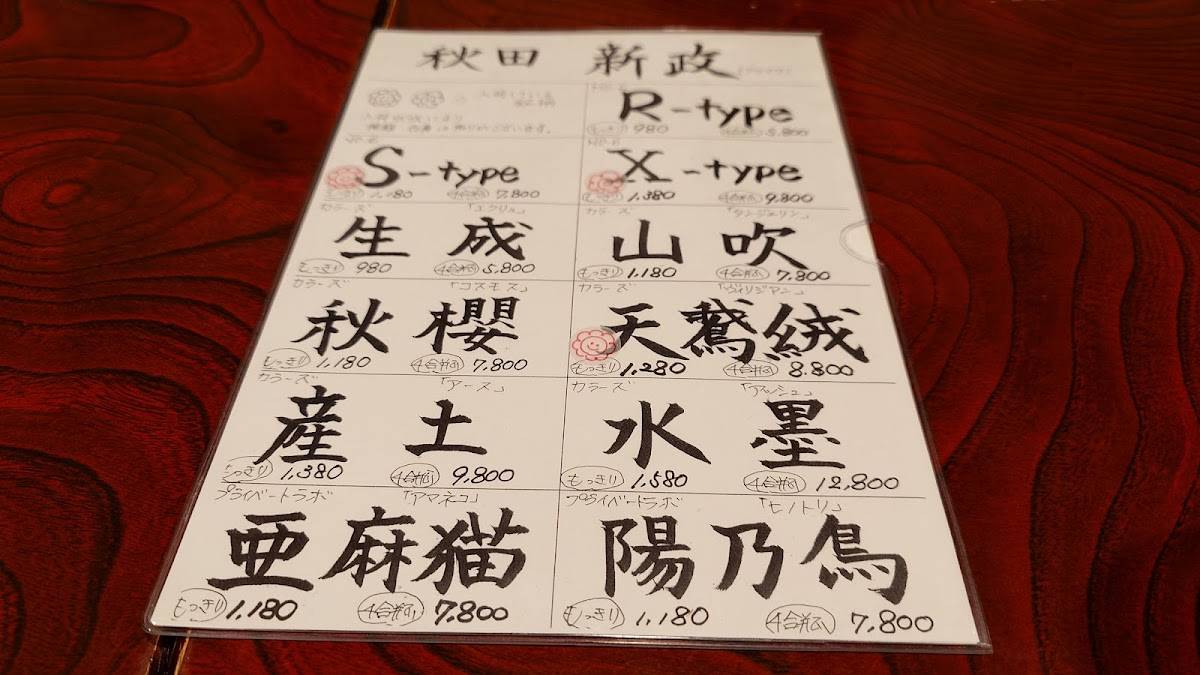 秋田 新政
R-type
もっきり 980 5,800
NO.6
S-type
もっきり 1,180 4合瓶 7,800
X-type
もっきり 1,380 4合瓶 9,800
カラーズ 「エクリュ」
生成
もっきり 980 4合瓶 5,800
カラーズ 「タンジェリン」
山吹
もっきり 1,180 4合瓶 7,800
カラーズ 「コスモス」
秋櫻
もっきり 1,180 4合瓶 7,800
カラーズ 「ヴィリジアン」
天鵞絨
もっきり 1,280 4合瓶 8,800
カラーズ 「アース」
産土
もっきり 1,380 4合瓶 9,800
カラーズ 「アッシュ」
水墨
もっきり 1,580 4合瓶 12,800
プライベートラボ 「アマネコ」
亜麻猫
もっきり 1,180 4合瓶 7,800
プライベートラボ 「ヒノトリ」
陽乃鳥
もっきり 1,180 4合瓶 7,800